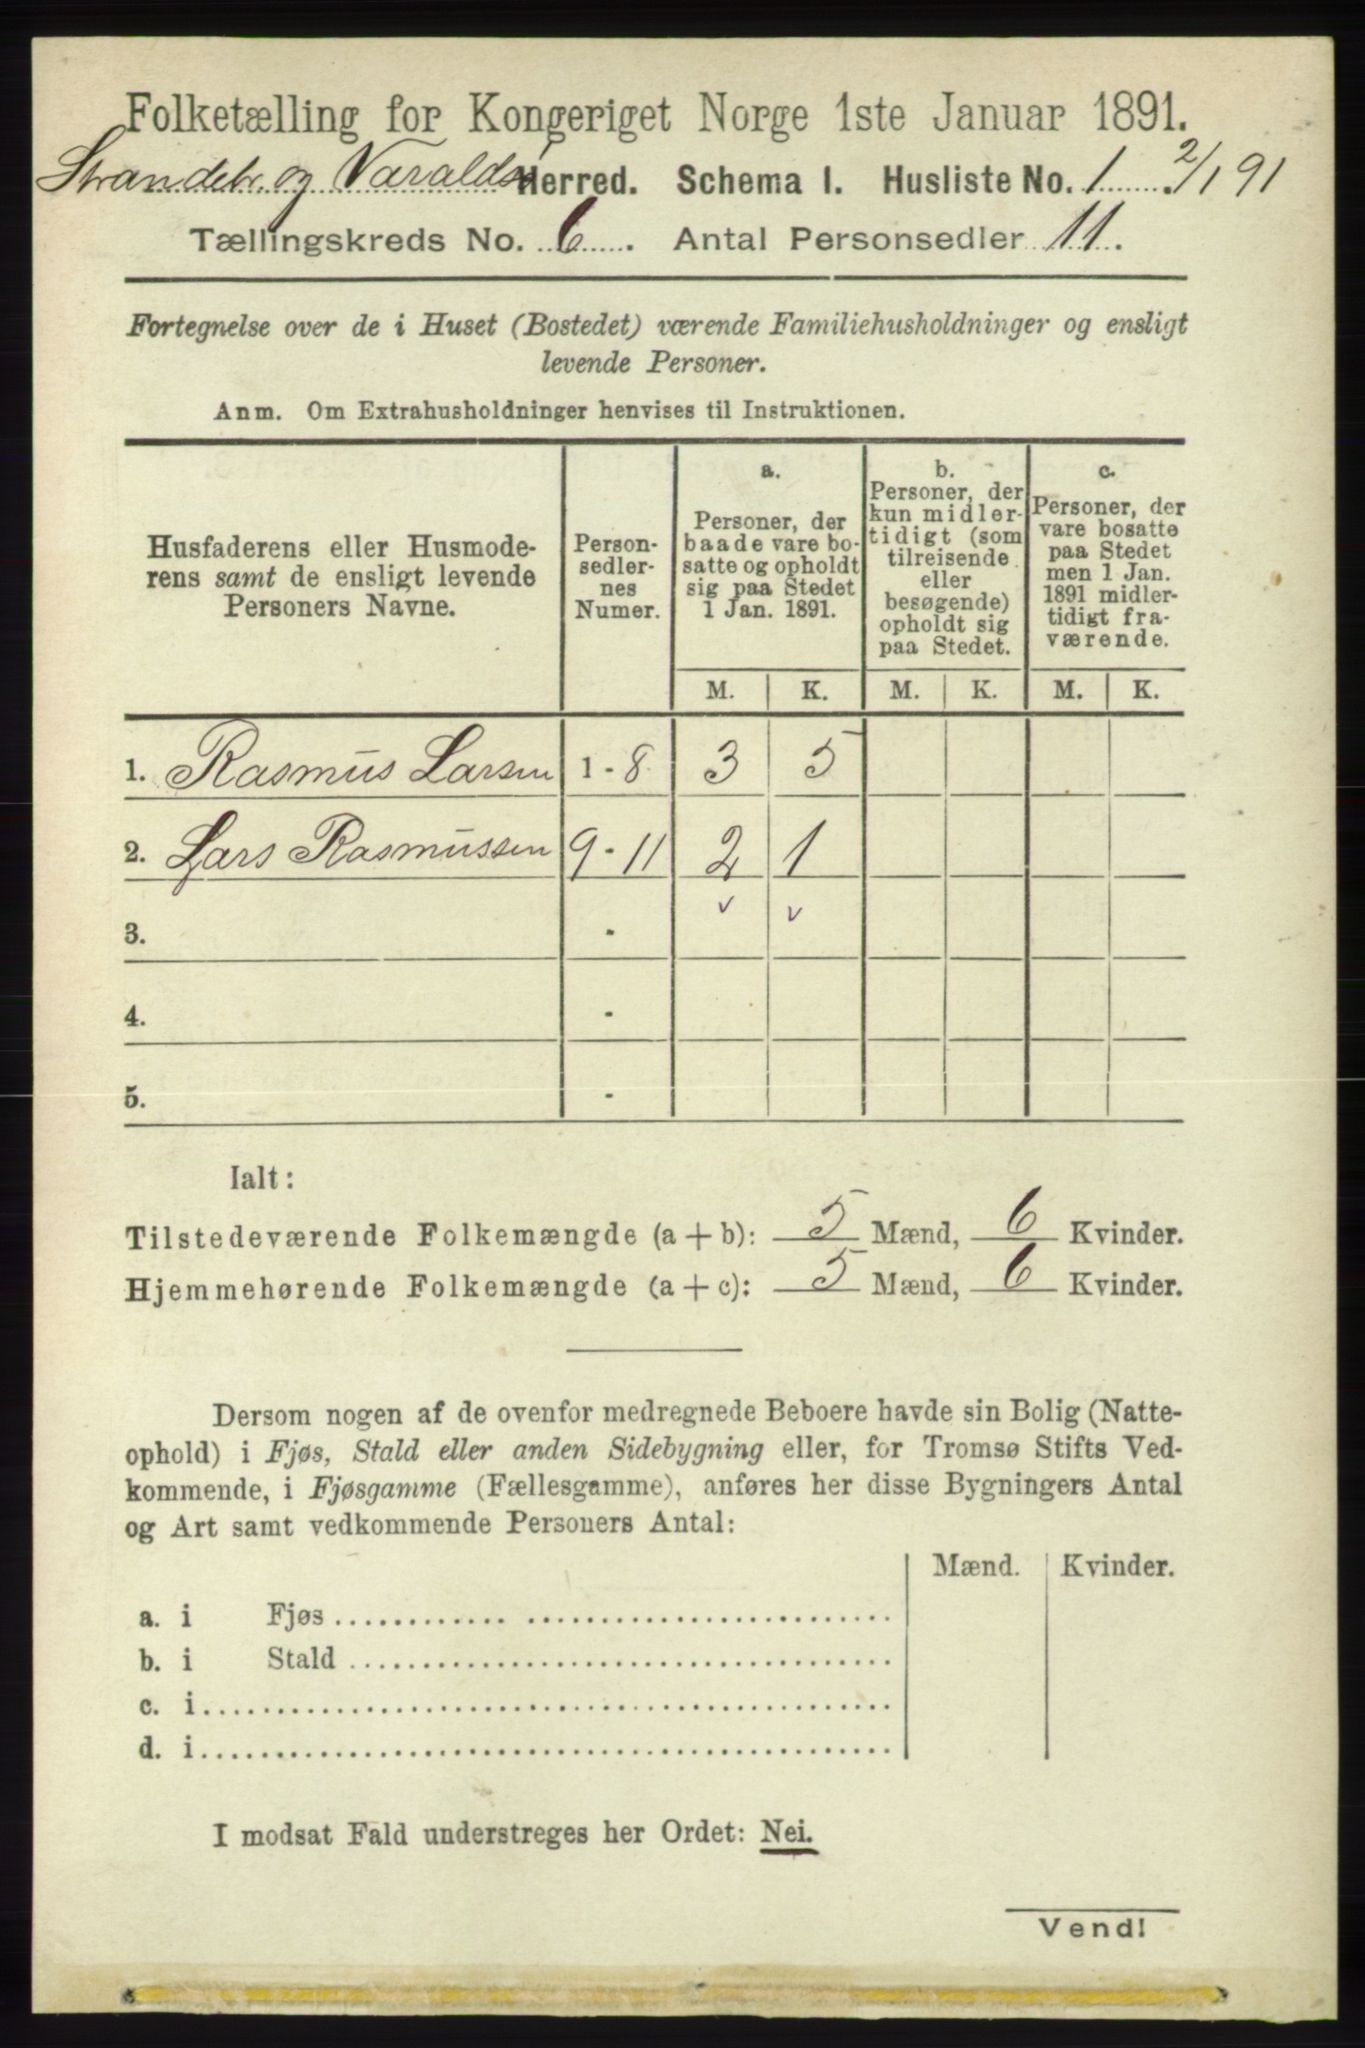 Folketælling for Kongeriget Norge 1ste Januar 1891.
Strandebr. og Varaldsø Herred. Schema I. Husliste No. 1. 2/1 91
Tællingskreds No. 6. Antal Personsedler 11.
Fortegnelse over de i Huset (Bostedet) værende Familiehusholdninger og ensligt
levende Personer.
Anm. Om Extrahusholdninger henvises til Instruktionen.
Husfaderens eller Husmode-
rens samt de ensligt levende
Personers Navne.
Person-
sedler-
nes
Numer.
a.
Personer, der
baade vare bo-
satte og opholdt
sig paa Stedet
1 Jan. 1891.
b.
Personer, der
kun midler-
tidigt (som
tilreisende
eller
besøgende)
opholdt sig
paa Stedet.
c.
Personer, der
vare bosatte
paa Stedet
men 1 Jan.
1891 midler-
tidigt fra-
værende.
M. K. M. K. M. K.
1. Rasmus Larsen 1 - 8 3 5
2. Lars Rasmussen 9 - 11 2 1
v v
3. -
4. -
5. -
Ialt:
Tilstedeværende Folkemængde (a + b): 5 Mænd, 6 Kvinder.
Hjemmehørende Folkemængde (a + c): 5 Mænd, 6 Kvinder.
Dersom nogen af de ovenfor medregnede Beboere havde sin Bolig (Natte-
ophold) i Fjøs, Stald eller anden Sidebygning eller, for Tromsø Stifts Ved-
kommende, i Fjøsgamme (Fællesgamme), anføres her disse Bygningers Antal
og Art samt vedkommende Personers Antal:
Mænd. Kvinder.
a. i Fjøs
b. i Stald
c. i
d. i
I modsat Fald understreges her Ordet: Nei.
Vend!